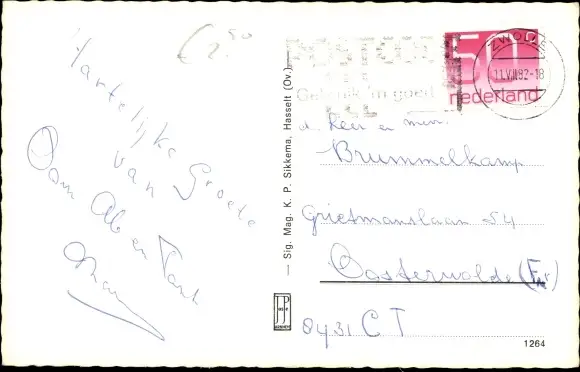 € 2.50
Hartelijke
Groete
van
Oom Ab en Tante
— Sig. Mag. K. P. Sikkema, Hasselt (Ov.)
JosPé
ZWOLLE
11.VIII.82-18
50c
nederland
Gebruik 'm goed
d. Heer en mevr.
Brummelkamp
Grietmanslaan 54
Oosterwolde (Fr)
8431 CT
1264